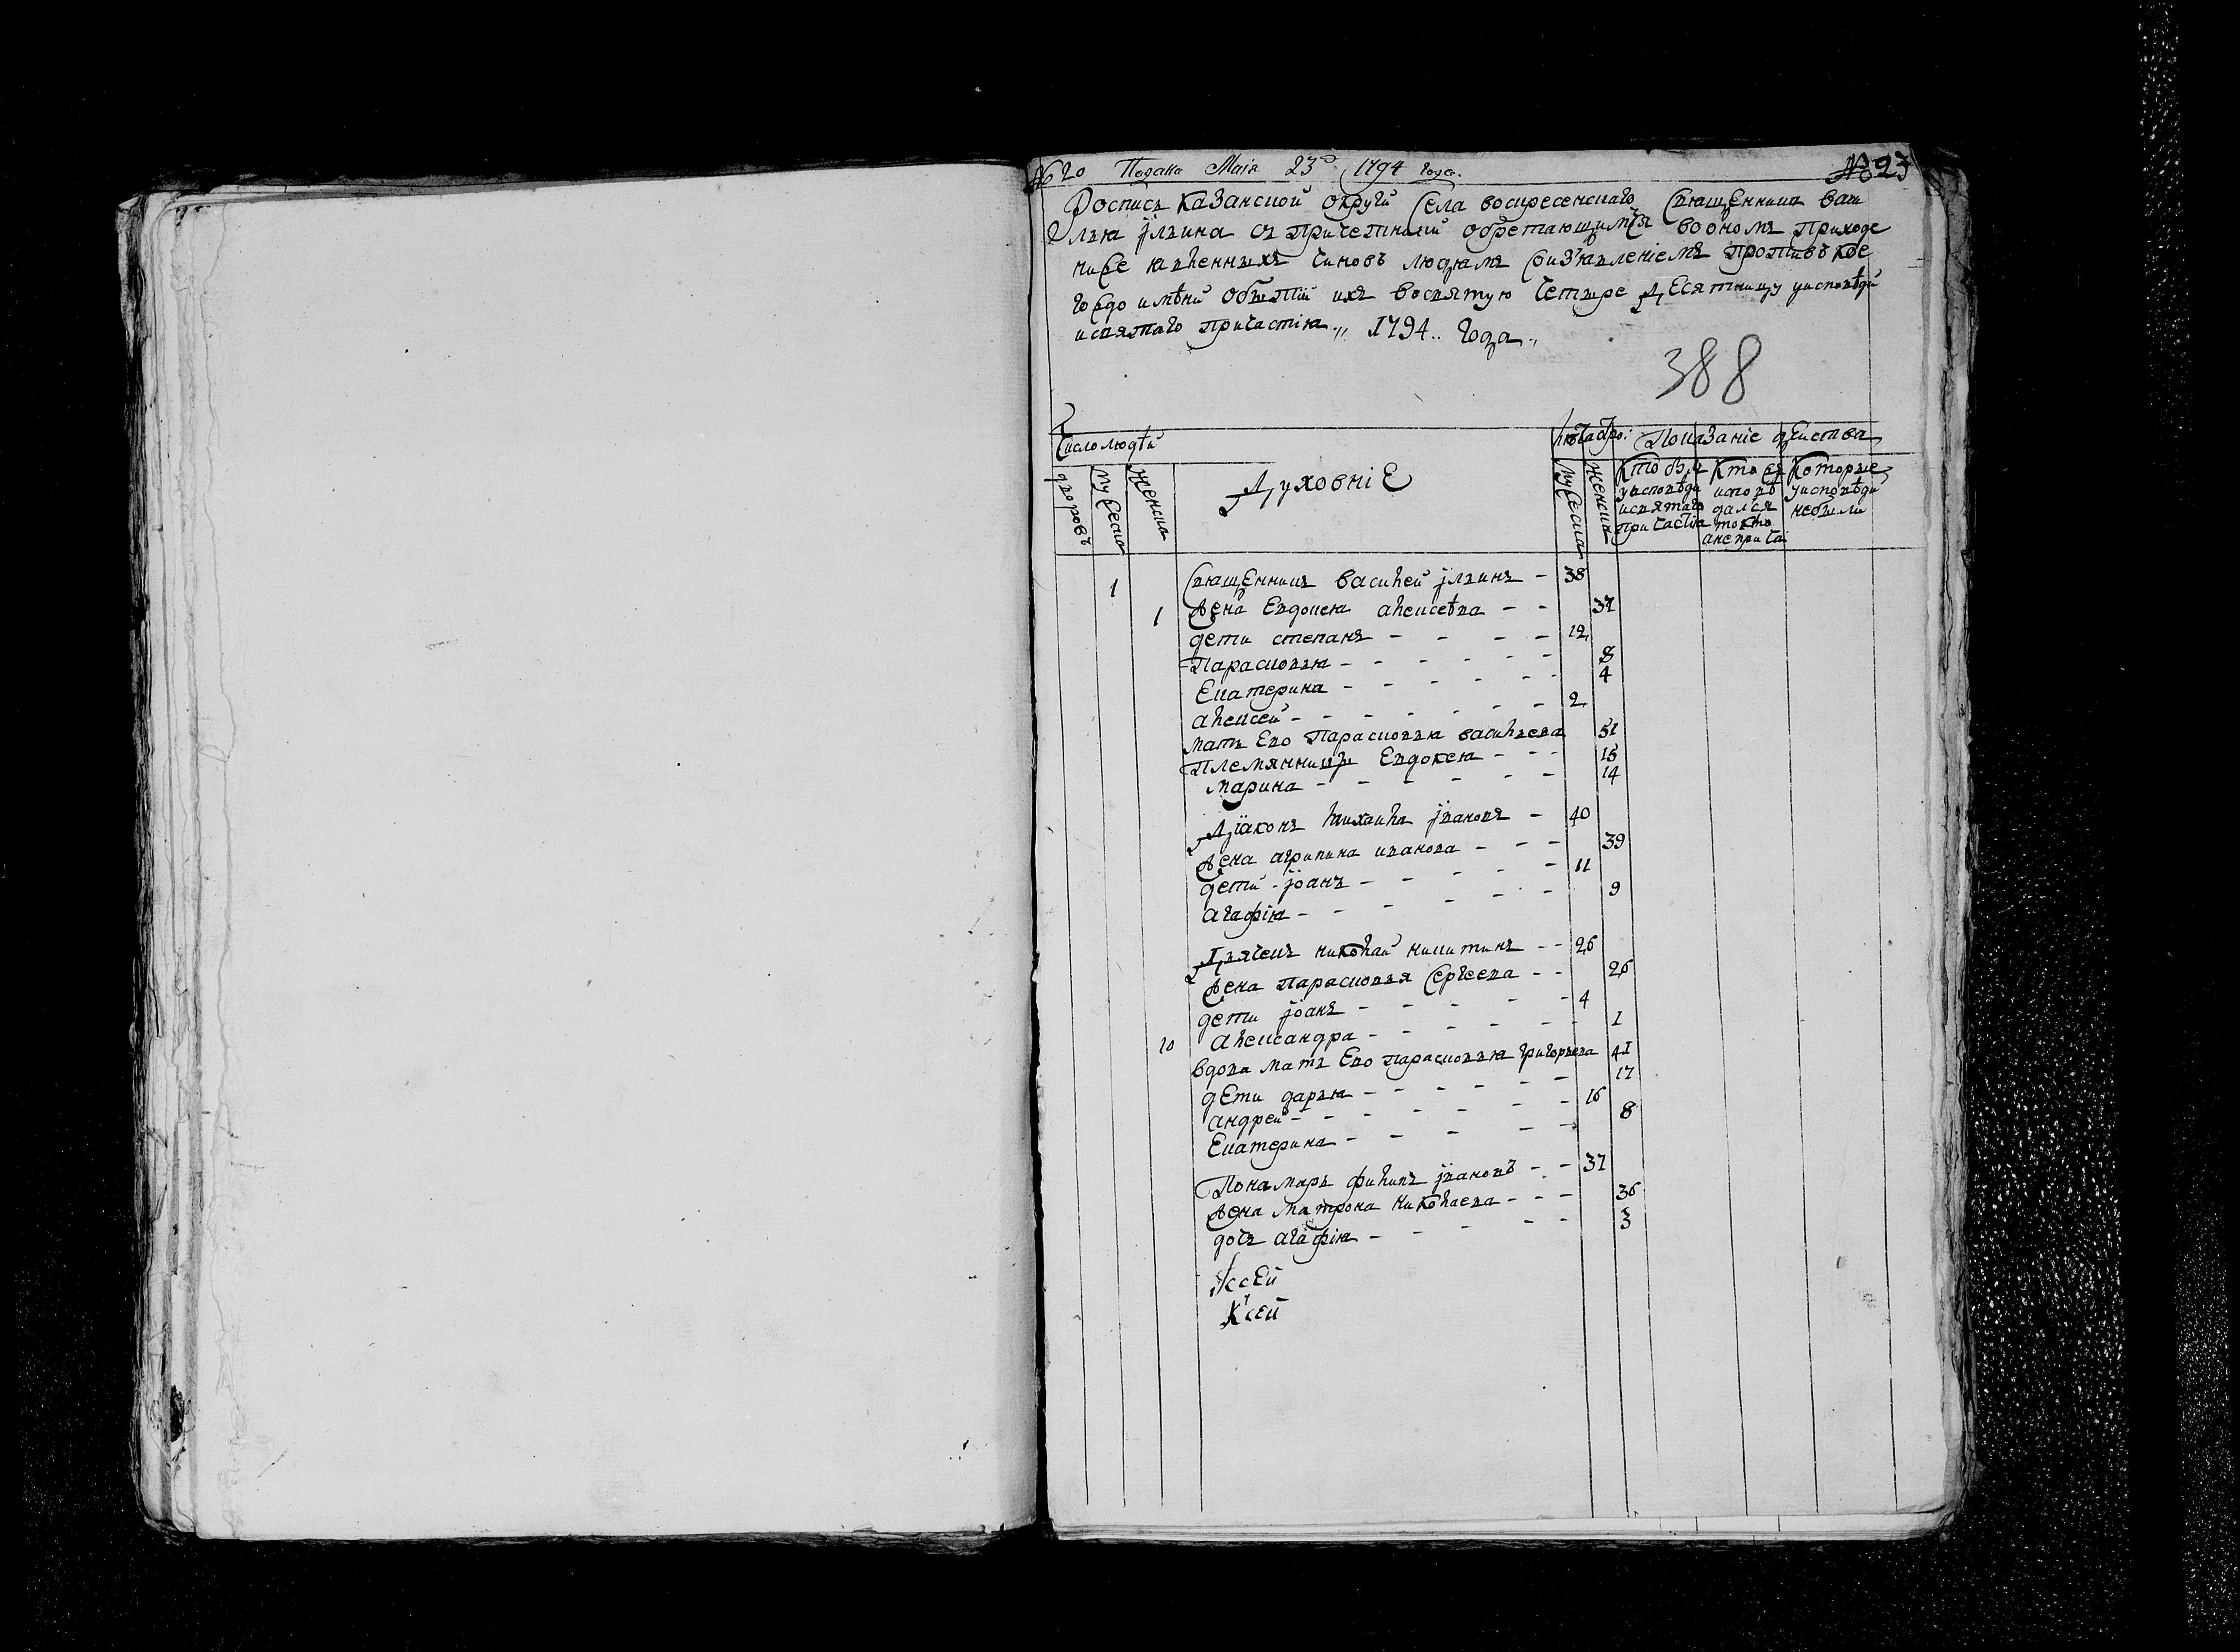 № 20 Подана Маія 23 1794 года.
№ 23
Роспись Казанской округи Села воскресенскаго Священника васи
лья Ильина съ причетники обретающимся во ономъ приходе
ниже явленныхъ чиновъ людямъ сизъявленіемъ противъ кое
гождо имѣни о бытїи ихъ восвятую четыре десятницу уисповѣди
исвятаго причастія 1794 года
388
Число людѣй
Лѣта отро:
Показаніе действа
дворовъ
мужеска
женска
Духовніе
мужеска
женска
Кто были
уисповѣди
исвятаго
причастія
Кто
исповѣ
дался
токмо
анеприча
Которые
уисповѣди
небыли
1 Священникъ василей Ильинъ - 38
1 Жена Евдокея алексѣева - - 37
дети степанъ - - - - 12
Парасковья - - - - - - 8
Екатерина - - - - - - 4
алексей - - - - - - - 2
мать Ево Парасковья васильева 51
Племянницы Евдокея - - - 15
марина - - - - - - 14
Дїаконъ михаила Ївановъ - 40
Жена агрипина иванова - - - 39
дети Їоанъ - - - - - 11
агафія - - - - - - 9
Дьячекъ николай никитинъ - - 26
Жена парасковья Сергеева - - 26
дети Їоанъ - - - - - 4
10 александра - - - - - - 1
вдова мать Ево парасковья григорьева 41
дети дарья - - - - - - 17
андрей - - - - - - - 16
Екатерина - - - - - 8
Понамарь филипъ Ївановъ - - 37
Жена матрона николаева - - - 36
дочь агафія - - - - - 3